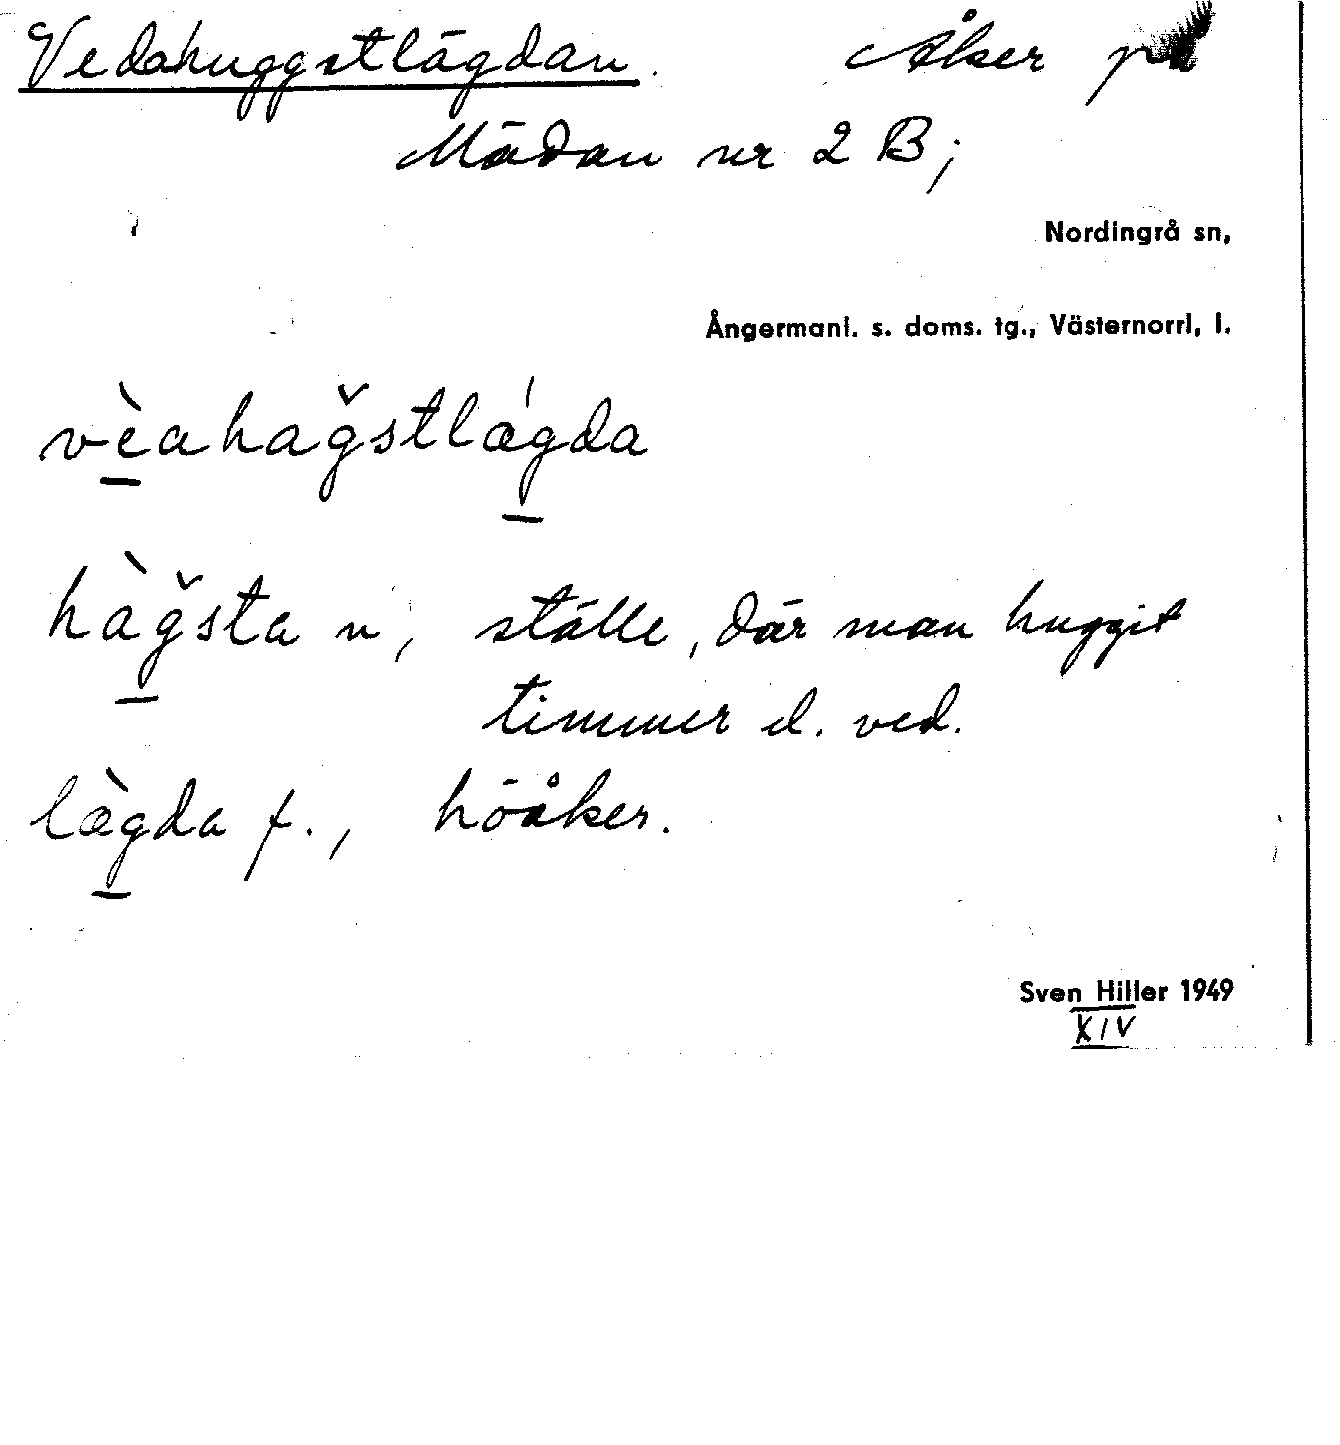 Vedahuggstlägdan. Åker på
Mädan nr 2 B;
Nordingrå sn,
Ångermanl. s. doms. tg., Västernorrl, l.
vèahağ̌stlǽgda
hàğsta n, ställe, där man huggit
timmer el. ved.
læ̀gda f., höåker.
Sven Hiller 1949
XIV